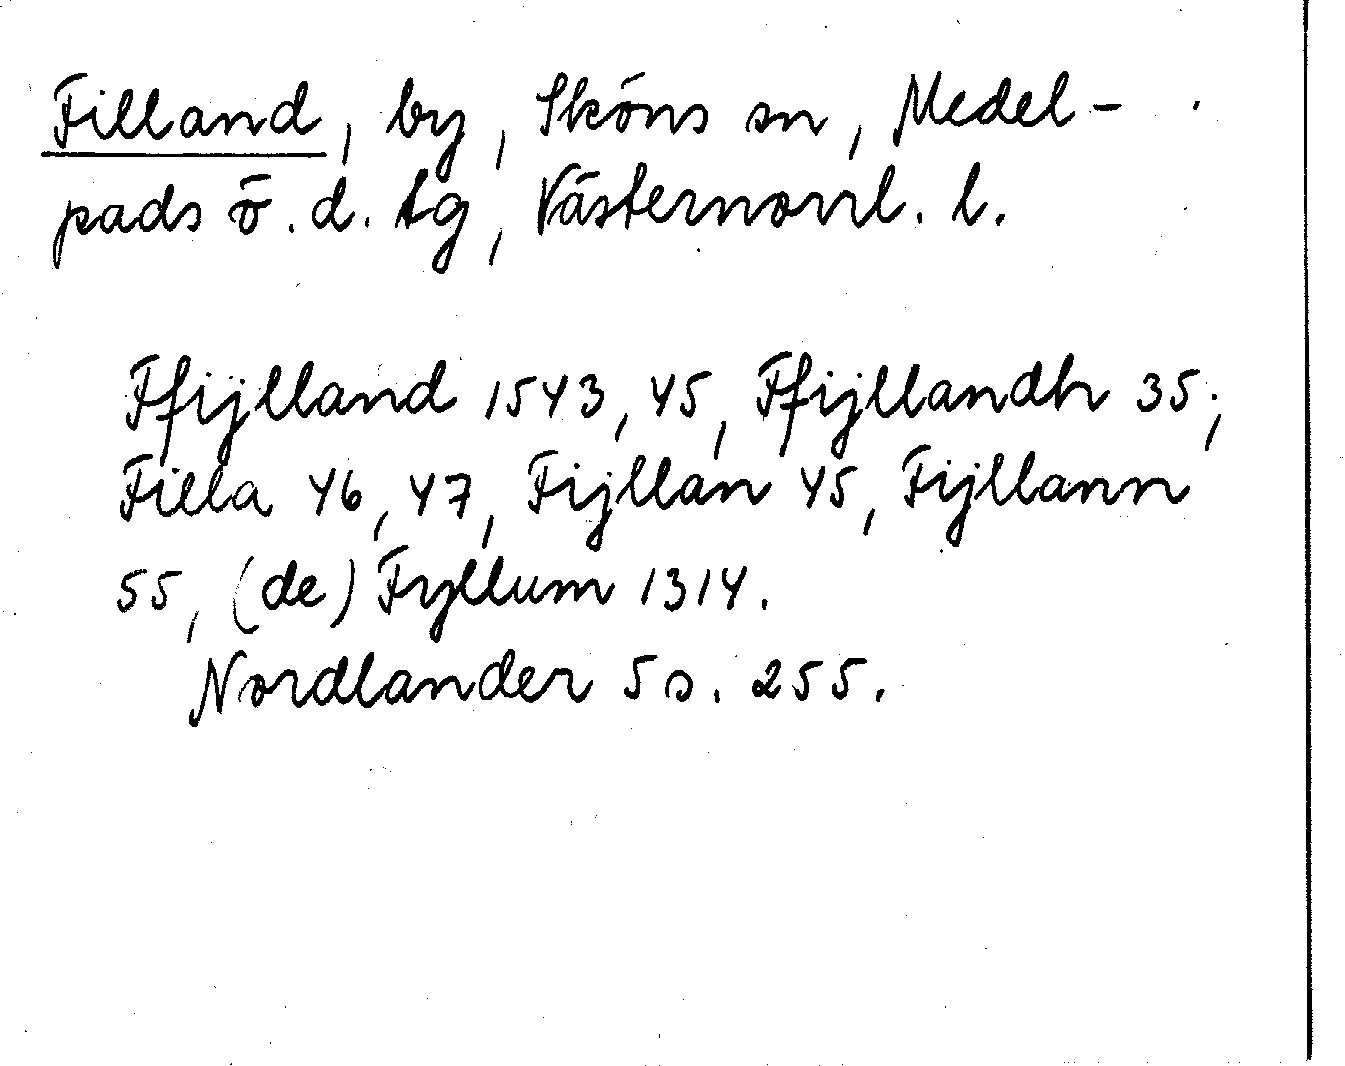 Filland, by, Sköns sn, Medel-
pads ö. d. tg, Västernorrl. l.
Ffijlland 1543, 45, Ffijllandh 35,
Filla 46, 47, Fijllan 45, Fijllann
55, (de) Fyllum 1314.
Nordlander 5 s. 255.